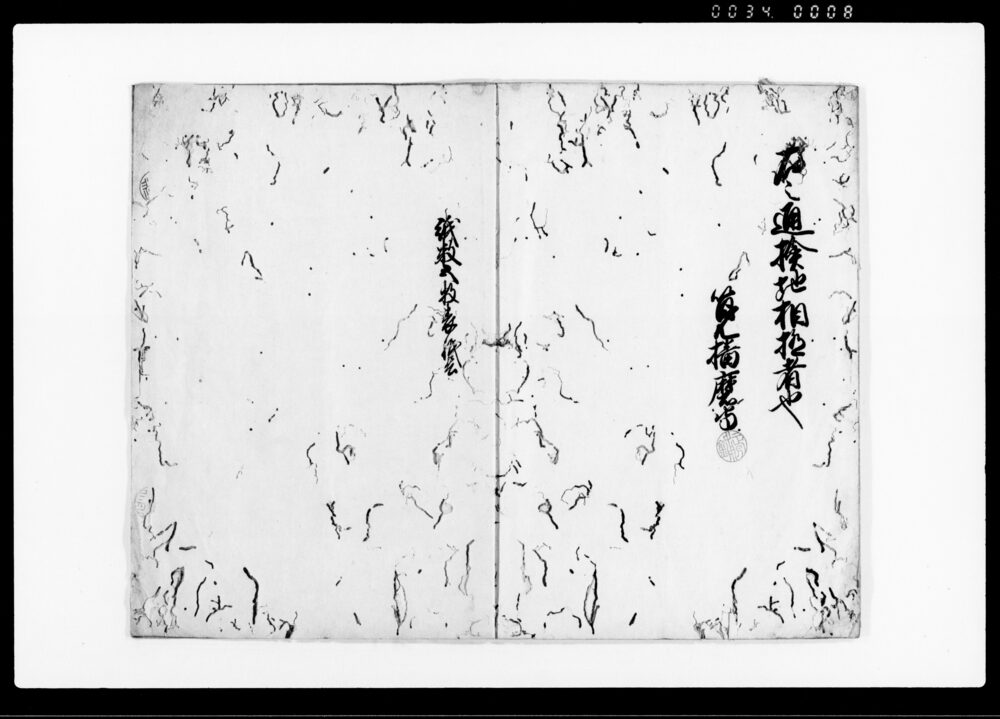 0034 0008
右之通検地相極者也
播磨守
紙数
枚表紙